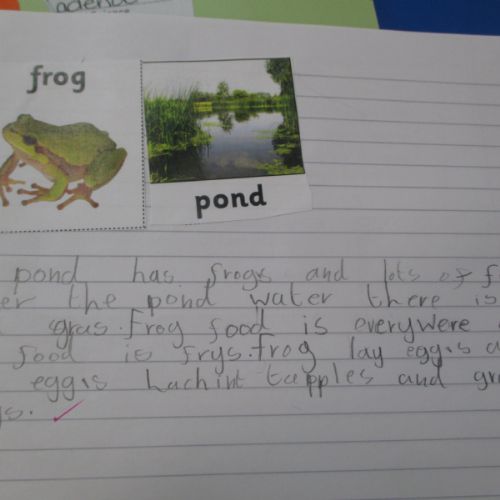 frog
pond
pond has frogs and lots of f
er the pond water there is
gras. frog food is everywere
food is frys. frog lay eggs a
eggs hachint tapples and gr
gs.